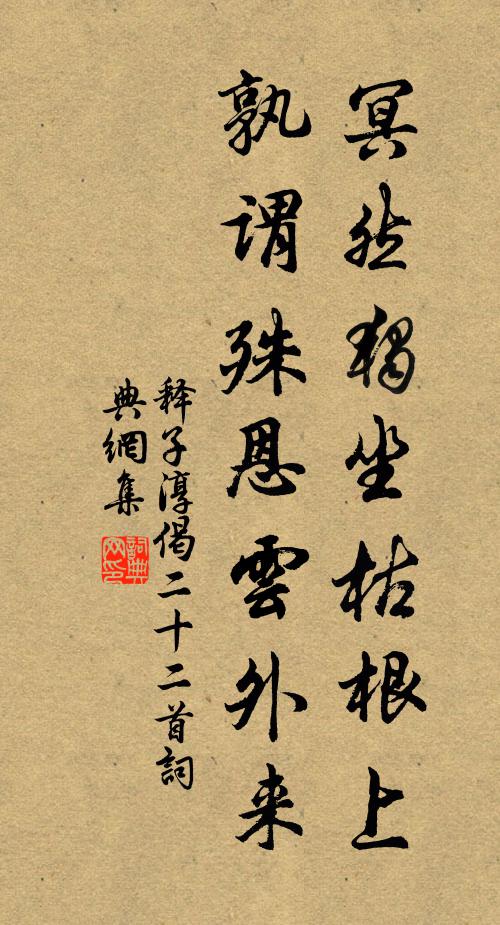 冥然独坐枯根上
孰谓殊恩雲外来
释子淳偈二十二首詞
典網集
詞典網印